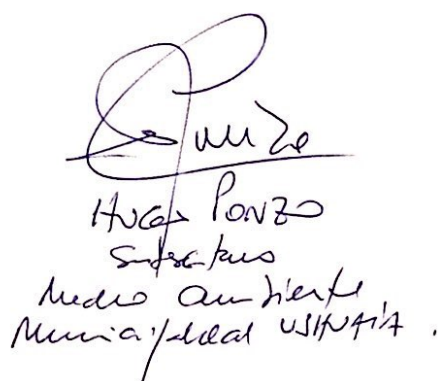 Ponzo
HUGO PONZO
Subsecretario
Medio Ambiente
Municipalidad USHUAIA.